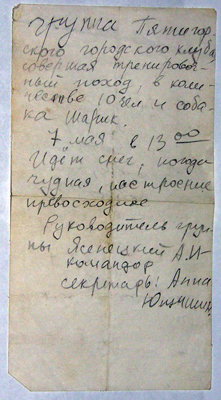 группа Пятигор-
ского городского клуба
совершая трениров-
ный поход, в коли-
честве 10 чел и соба-
ка Шарик.
7 мая в 13 00
Идёт снег, погода
чудная, настроение
превосходное
Руководитель груп-
пы Ясенецкий А.И-
командор
секретарь: Анна